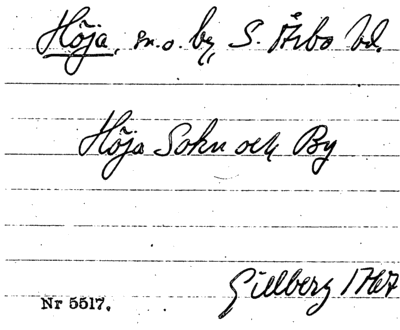 Höja, sn. o. by, S. Åsbo hd.
Höja Sokn och By
Gillberg 1767
Nr 5517.